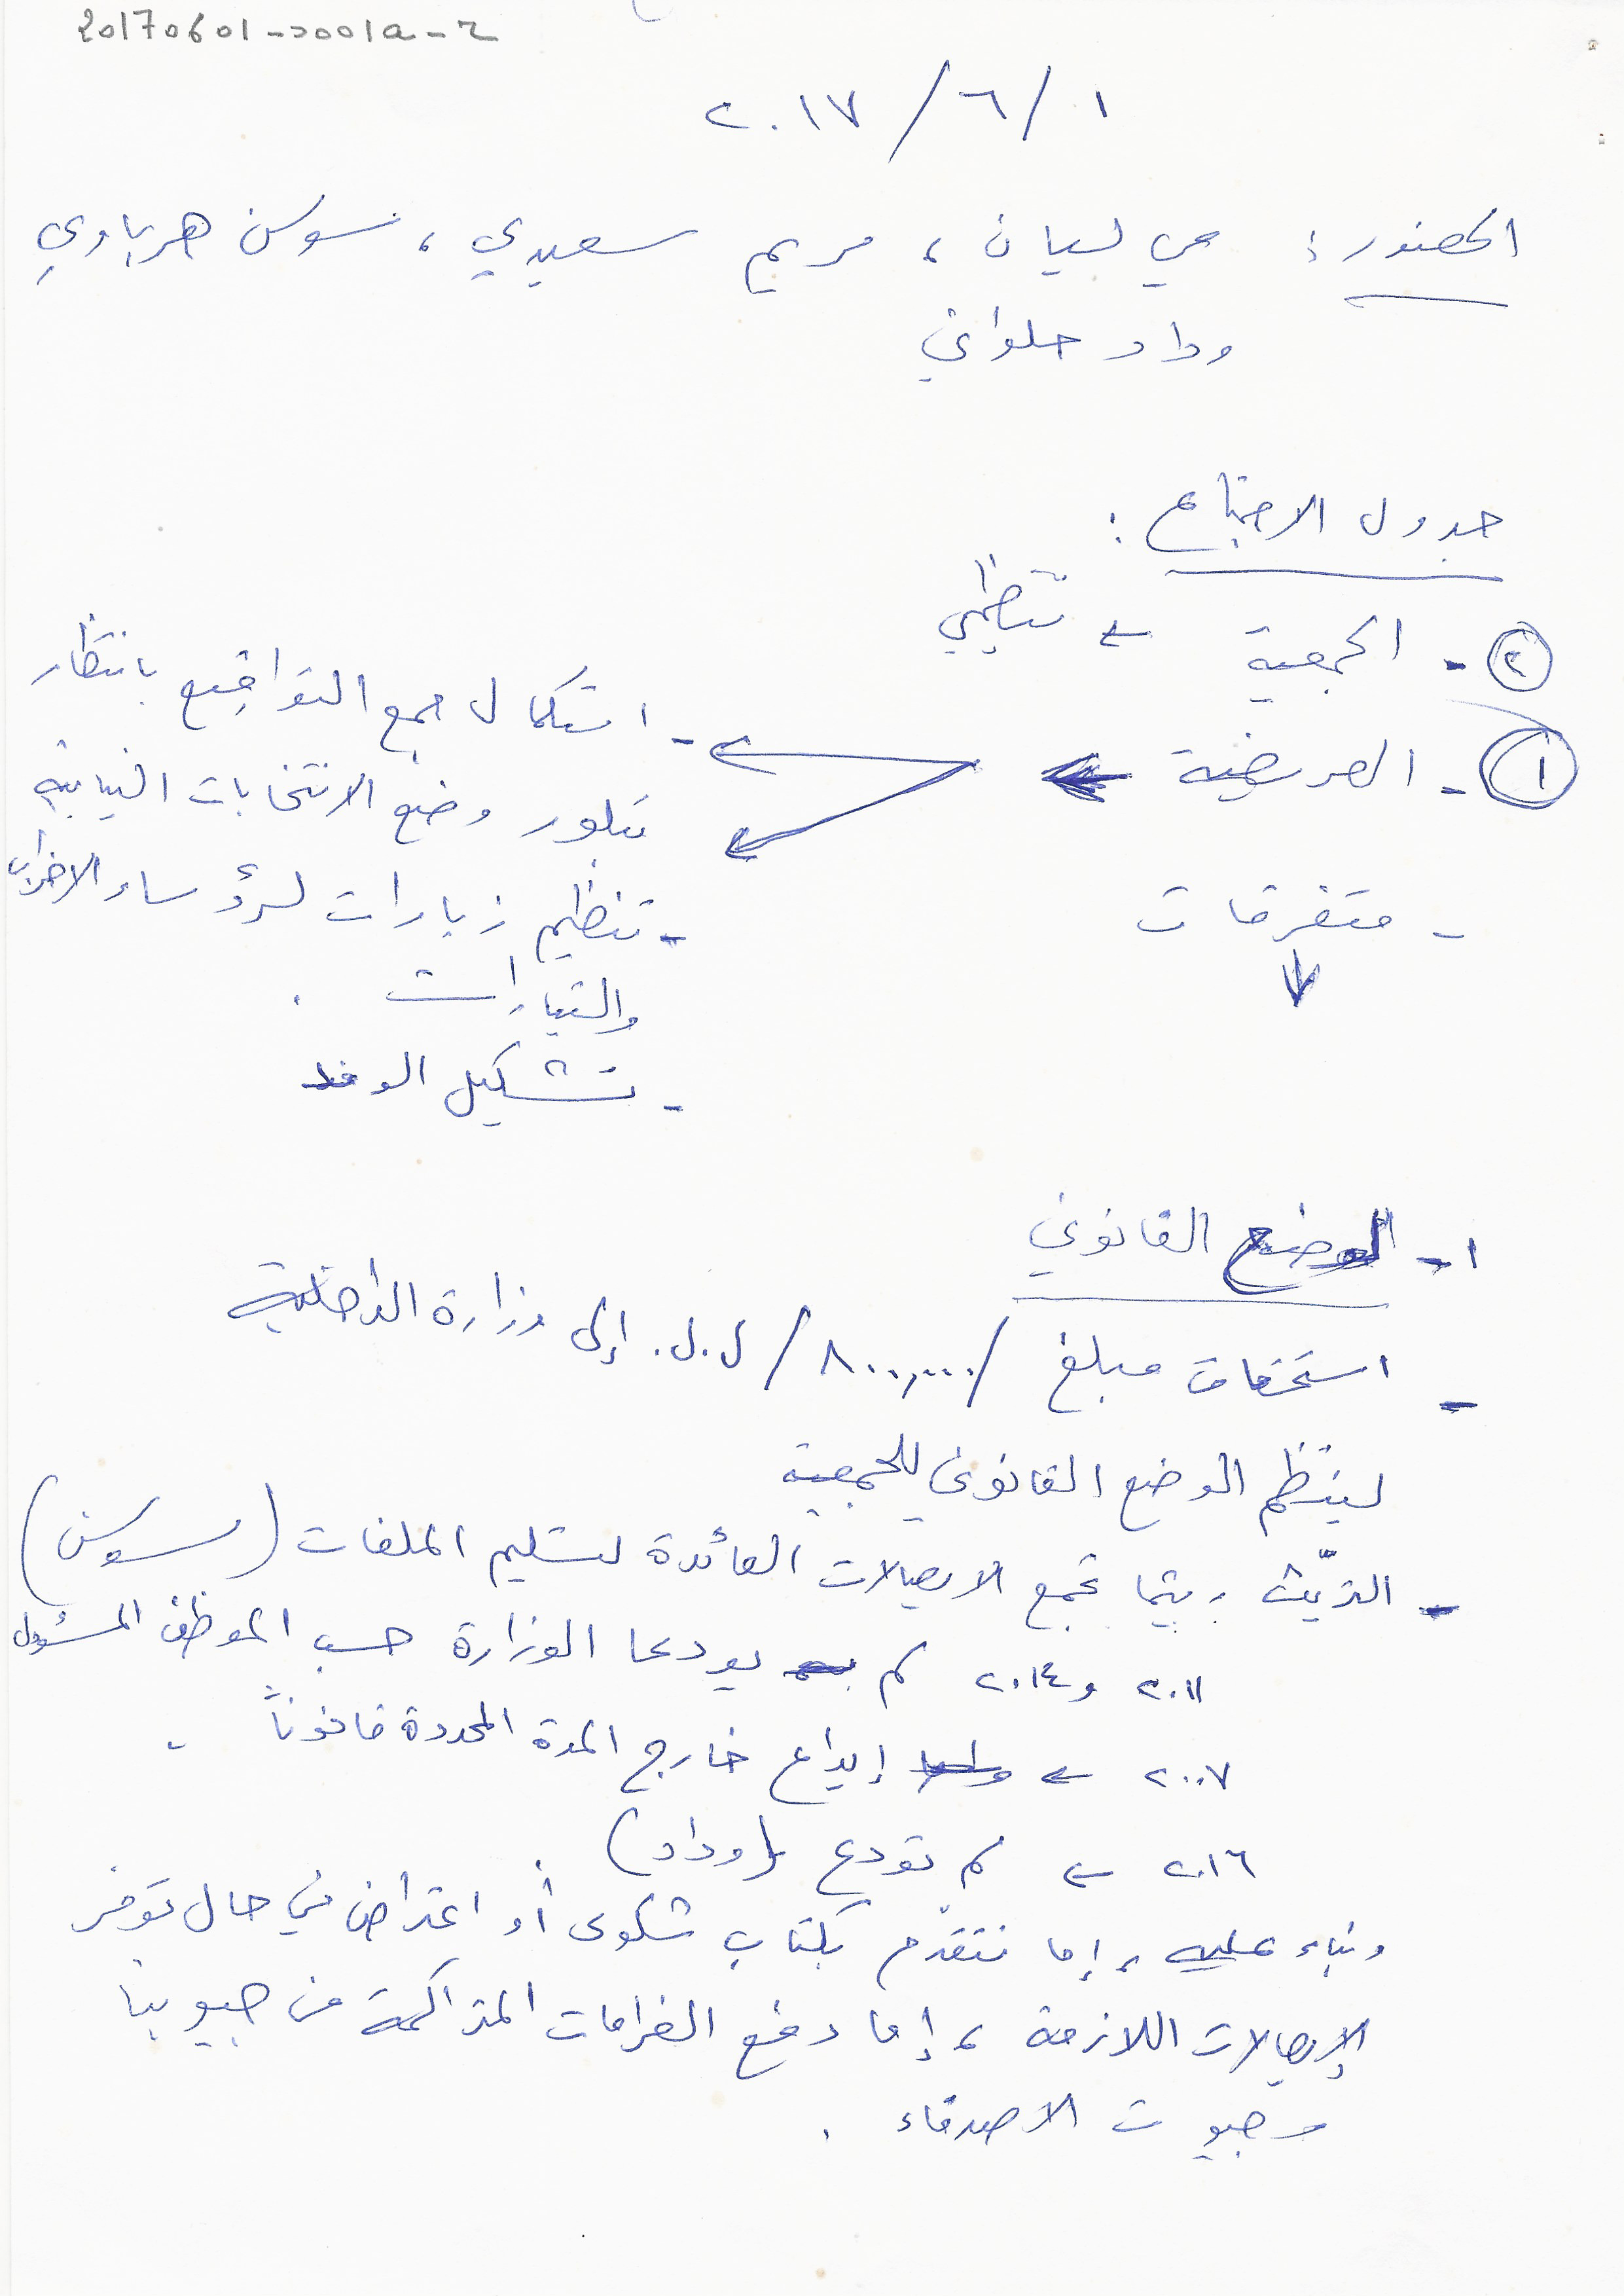 20170601-0001a-z
٢٠١٧/٦/١
الحضور: مي لسيان، مريم سعيدي، سوسن هرباوي
وداد حلواني
جدول الاجتماع:
٢- الجمعية ← تنظيمي
١- العريضة ←
- استكمال جمع التواقيع بانتظار
تبلور وضع الانتخابات النيابية
- تنظيم زيارات لرؤساء الاحزاب
والتيارات.
- تشكيل الوفد
- متفرقات
١- الوضع القانوني
- استحقاق مبلغ /٨٠٠,٠٠٠/ ل.ل. إلى وزارة الداخلية
لينتظم الوضع القانوني للجمعية
- التريّث ريثما تجمع الايصالات العائدة لتسليم الملفات (سوسن)
٢٠١١ و٢٠١٤ لم يودعا الوزارة حسب الموظف المسؤول
٢٠٠٧ ← إيداع خارج المدة المحددة قانوناً -
٢٠١٦ ← لم تودع (وداد)
وبناء عليه، إما نتقدّم بكتاب شكوى أو اعتراض في حال توفر
الإيصالات اللازمة، إما دفع الغرامات المتراكمة من جيوبنا
وجيوب الاصدقاء.